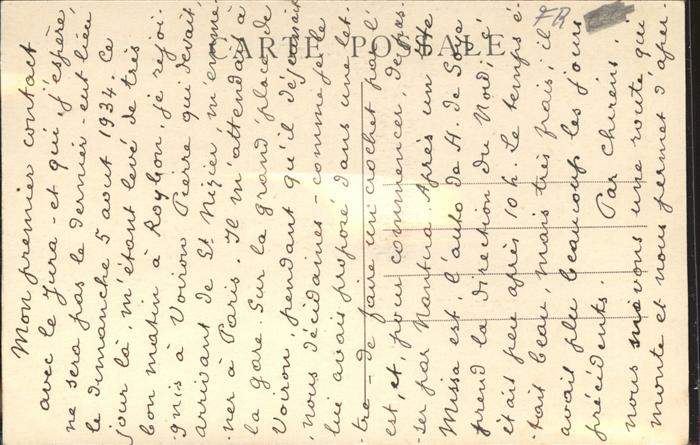 FR
CARTE POSTALE
Mon premier contact
avec le Jura - et qui, j'espère,
ne sera pas le dernier - eut lieu
le dimanche 5 août 1934. Ce
jour là, m'étant levé de très
bon matin à Roybon, je rejoi-
gnis à Voiron Pierre qui devait,
arrivant de St Nizier m'emme-
ner à Paris. Il m'attendait à
la gare. Sur la grand'place de
Voiron, pendant qu'il déjeunait
nous décidâmes - comme je le
lui avais proposé dans une let-
tre - de faire un crochet par l'
est, et, pour commencer, de pas-
ser par Nantua. Après un Ite
Missa est, l'auto de H. de Soye
prend la direction du Nord; c'
était peu après 10 h. Le temps é-
tait beau, mais très frais; il
avait plu beaucoup les jours
précédents. Par Chirens
nous suivons une route qui
monte et nous permet d'aper-